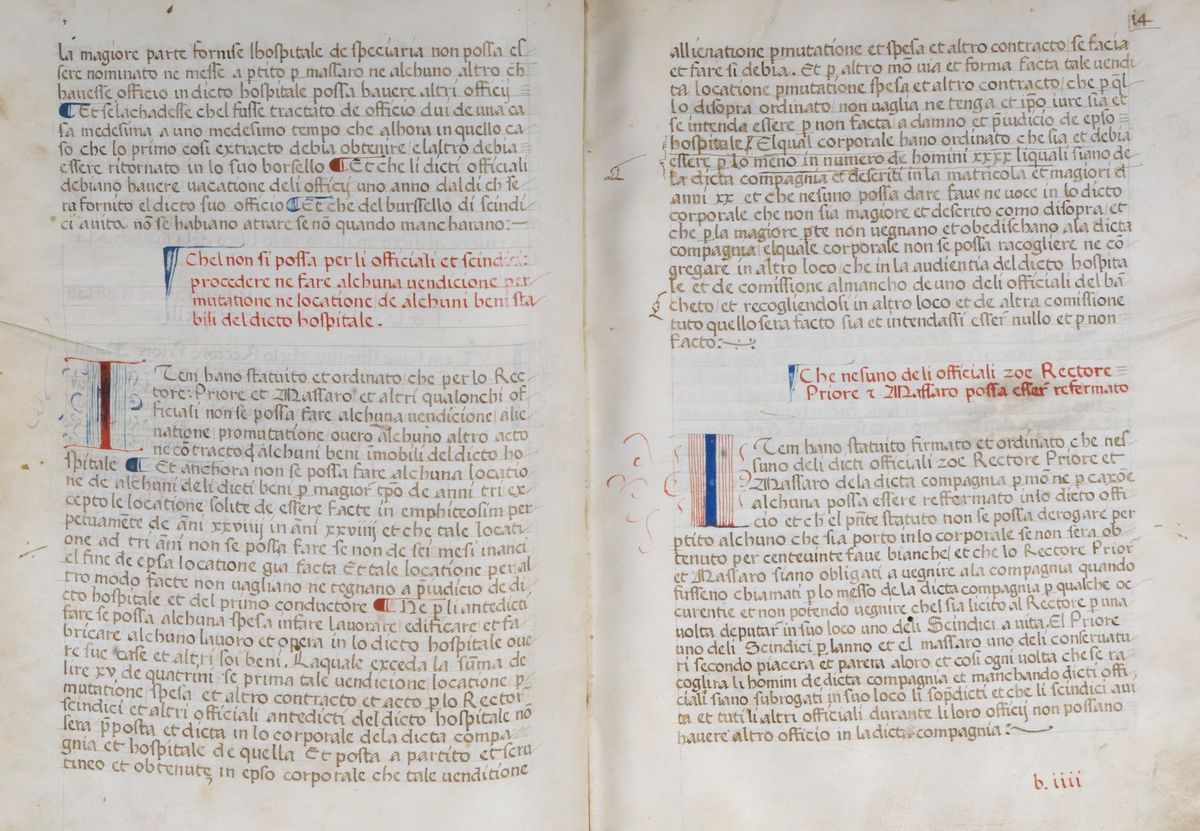 la magiore parte fornise lhospitale de speciaria non possa es
sere nominato ne messe a ptito p massaro ne alchuno altro ch̄
havesse officio in dicto hospitale possa havere altri officij
¶ Et se lachadesse chel fusse tractato de officio dui de una ca
sa medesima a uno medesimo tempo che alhora in quello ca
so che lo primo cosi extracto debia obtenire elaltro debia
essere ritornato in lo suo borsello ¶ Et che li dicti officiali
debiano havere vacatione deli officij uno anno dal di ch̄ se
ra fornito el dicto suo officio ¶ Et che del burssello di scindi
ci a vita nō se habiano atrare se nō quando mancharano:
Chel non si possa per li officiali et scindici
procedere ne fare alchuna vendicione per
mutatione ne locatione de alchuni beni sta
bili del dicto hospitale.
ITem hano statuito et ordinato che per lo Rec
tore: Priore et Massaro et altri qualonchi of
ficiali non se possa fare alchuna vendicione, alie
natione promutatione overo alchuno altro acto
ne cōtracto d̄ alchuni beni īmobili del dicto ho
spitale ¶ Et anchora non se possa fare alchuna locatio
ne de alchuni deli dicti beni p magior tp̄o de anni tri ex
cepto le locatione solite de essere facte in emphiteosim per
petuamēte de āni xxviiij in āni xxviiij et che tale locati
one ad tri āni non se possa fare se non de sei mesi inanci
el fine de epsa locatione gia facta Et tale locatione per al
tro modo facte non vagliano ne tegnano a p̄iudicio de di
cto hospitale et del primo conductore ¶ Ne p li antedicti
fare se possa alchuna spesa infare lavorare edificare et fa
bricare alchuno lavoro et opera in lo dicto hospitale ove
re sue case et altri soi beni. Laquale exceda la sūma de
lire xv, de quatrini se prima tale vendicione locatione p
mutatione spesa et altro contracto et acto p lo Rector
scindici et altri officiali antedicti del dicto hospitale nō
sera p̄posta et dicta in lo corporale dela dicta compa
gnia et hospitale de quella Et posta a partito et sera
tineo et obtenute in epso corporale che tale venditione
14
allienatione pmutatione et spesa et altro contracto se facia
et fare si debia. Et p altro mō via et forma facta tale vendi
ta locatione pmutatione spesa et altro contracto che p ql
lo disopra ordinato non vaglia ne tenga et ip̄o iure sia et
se intenda essere p non facta a damno et p̄iudicio de epso
hospitale / Elqual corporale hano ordinato che sia et debia
essere p lo meno in numero de homini xxxx liquali siano de
la dicta compagnia et descriti in la matricola et magiori d
anni xx et che nesuno possa dare fave ne voce in lo dicto
corporale che non sia magiore et descrito como disopra et
che p la magiore pte non vegnano et obedischano ala dicta
compagnia elquale corporale non se possa racogliere ne cō
gregare in altro loco che in la audientia del dicto hospita
le et de comissione almancho de uno deli officiali del bā
cheto et recogliendosi in altro loco et de altra comissione
tuto quello sera facto sia et intendassi esser nullo et p non
facto:
Che nesuno deli officiali zoe Rectore
Priore et Massaro possa esser refermato
ITem hano statuito firmato et ordinato che nes
suno deli dicti officiali zoe Rectore Priore et
Massaro dela dicta compagnia p mō ne p caxōe
alchuna possa essere reffermato in lo dicto offi
cio et ch̄ el p̄nte statuto non se possa derogare per
ptito alchuno che sia porto in lo corporale se non sera ob
tenuto per centevinte fave bianche et che lo Rectore Prior
et Massaro siano obligati a vegnire ala compagnia quando
fusseno chiamati p lo messo de la dicta compagnia p qualche oc
curentie et non potendo vegnire chel sia licito al Rectore p una
volta deputar in suo loco uno deli Scindici a vita. El Priore
uno deli Scindici p lanno et el massaro uno deli conservatu
ri secondo piacera et parera aloro et cosi ogni volta che se ra
coglira li homini de dicta compagnia et manchando dicti offi
ciali siano subrogati in suo loco li sop̄dicti et che li scindici avi
ta et tuti li altri officiali durante li loro officij non possano
havere altro officio in la dicta compagnia:
b. iiii